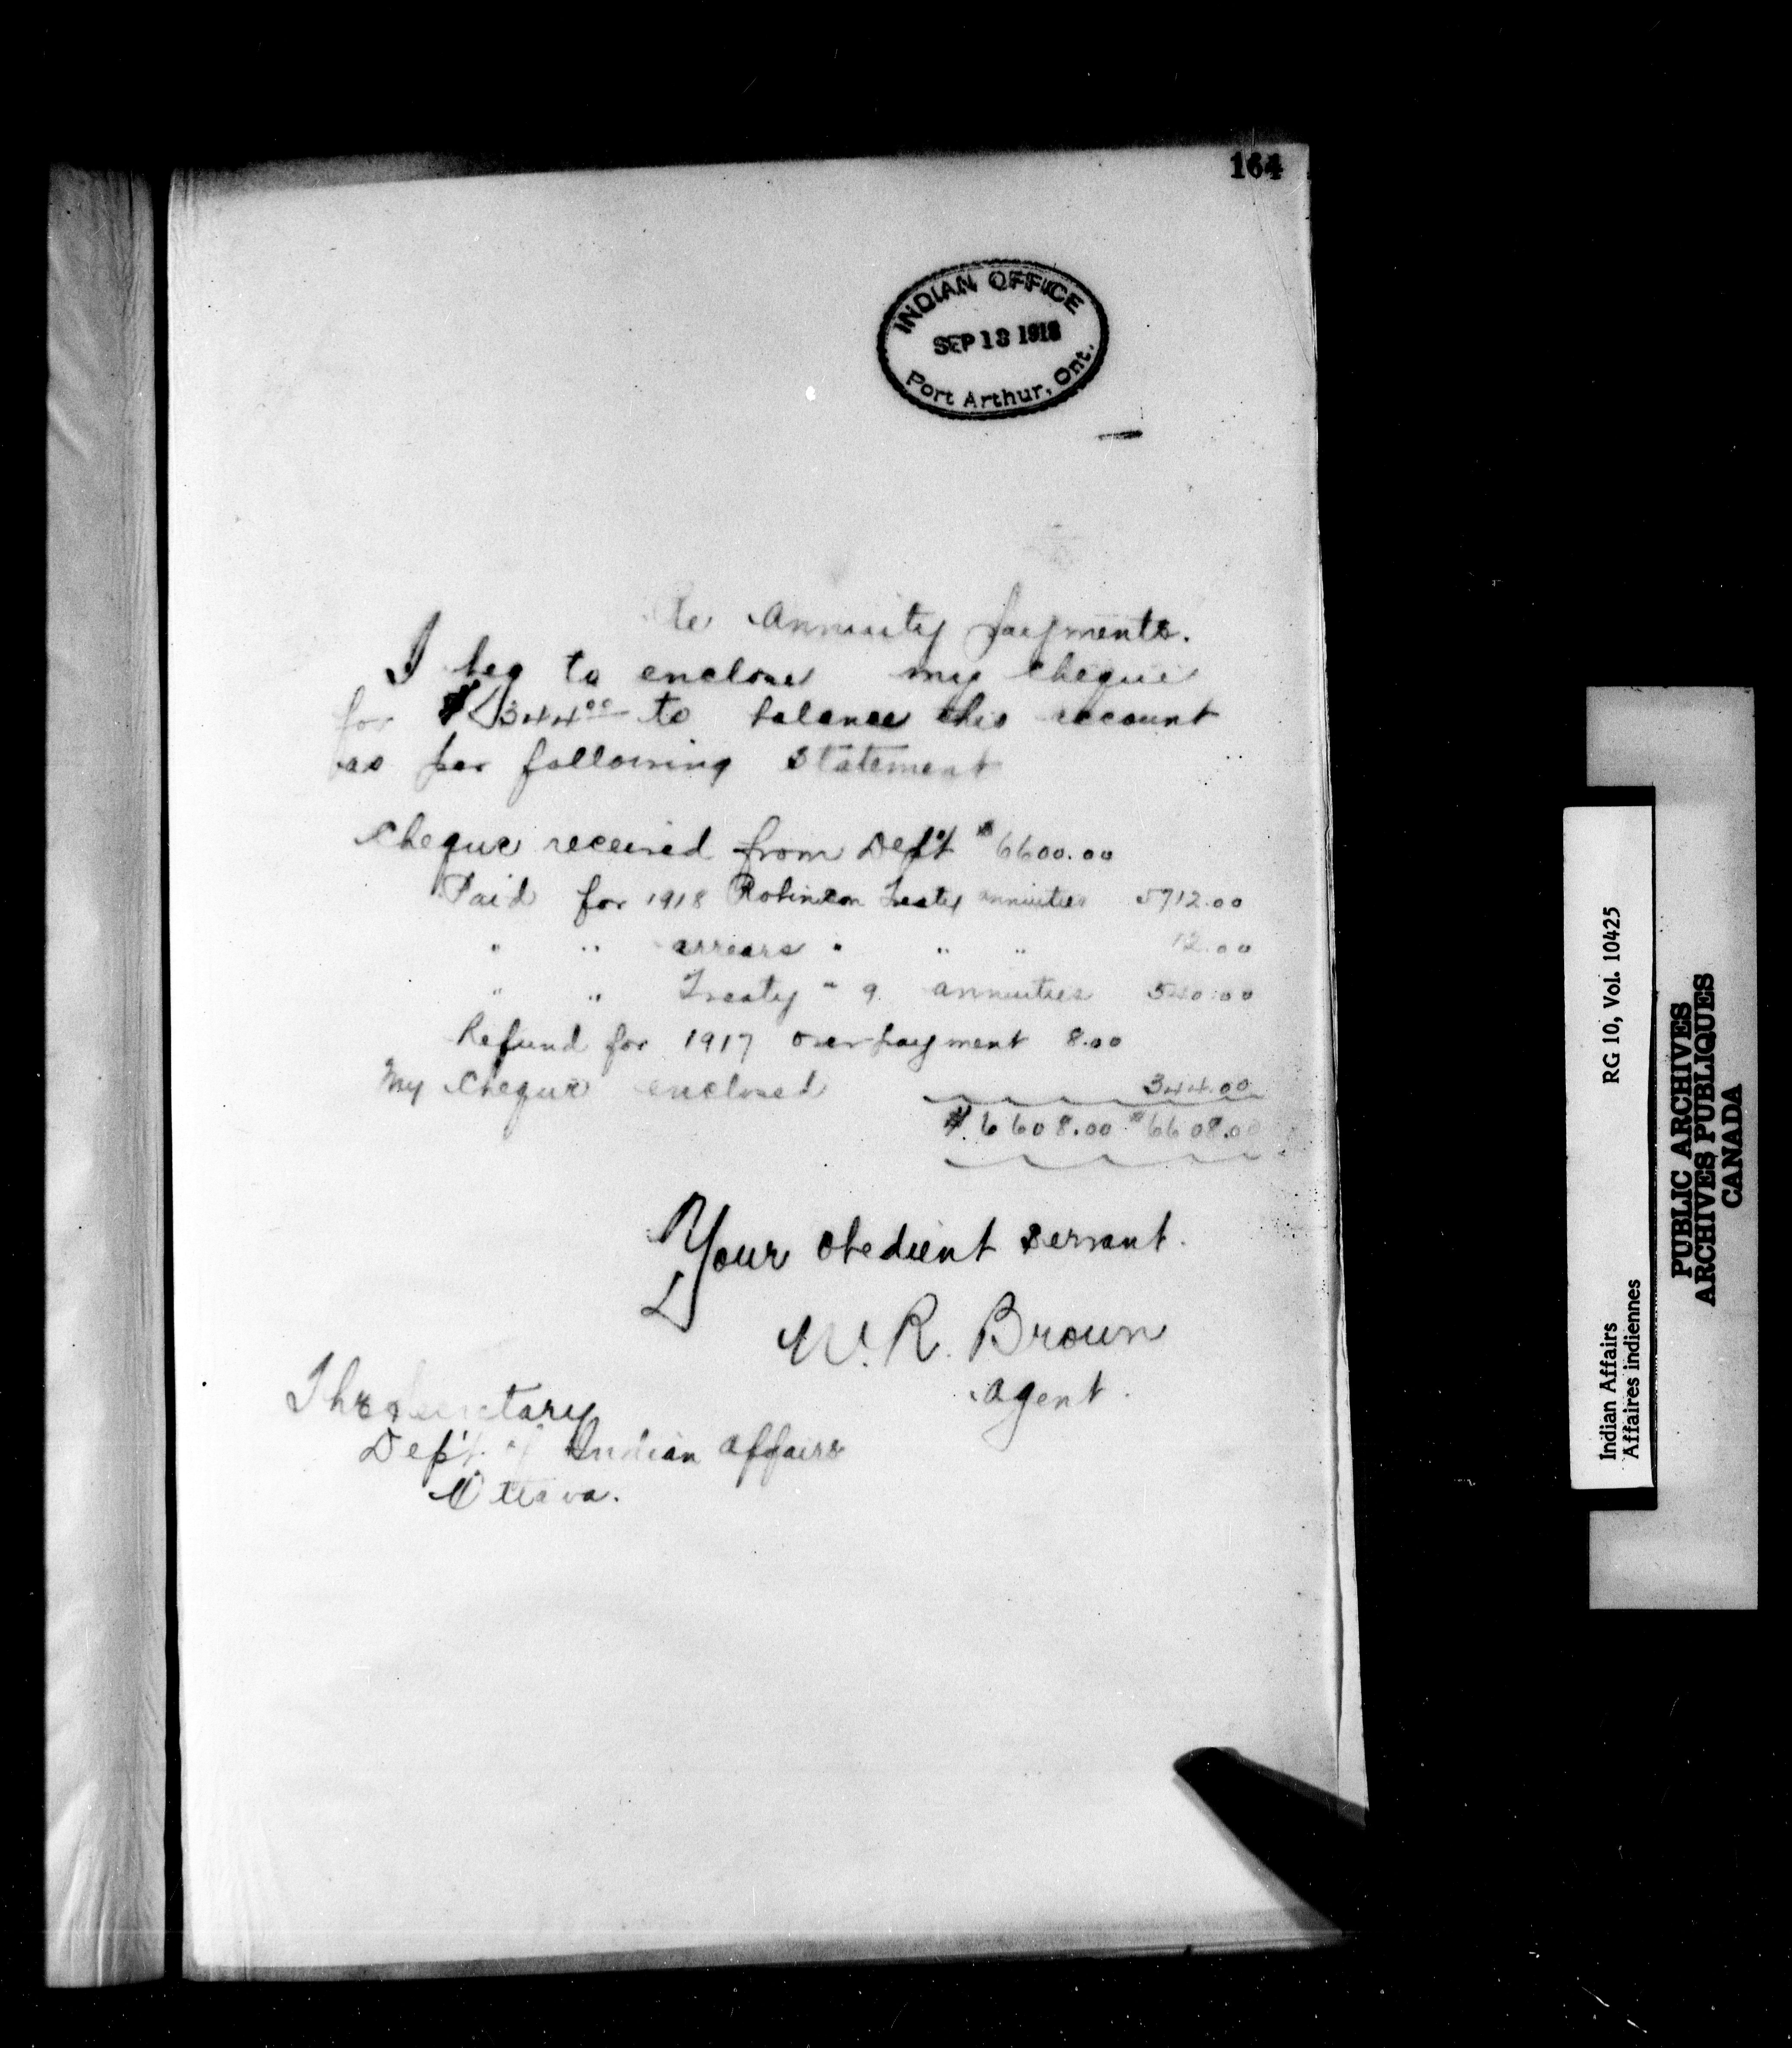 164
INDIAN OFFICE
SEP 13 1918
Port Arthur, Ont.
Re Annuity Payments.
I beg to enclose my cheque
for $344.00 to balance this account
as per following statement
Cheque received from Dep't $6600.00
Paid for 1918 Robinson Treaty annuities 5712.00
" " arrears " " " 12.00
" " Treaty " 9 annuities 540.00
Refund for 1917 over payment 8.00
My Cheque enclosed 344.00
$6608.00 $6608.00
Your obedient servant.
W. R. Brown
Agent.
The Secretary
Dep't. of Indian Affairs
Ottawa.
Indian Affairs RG 10, Vol. 10425
Affaires indiennes
PUBLIC ARCHIVES
ARCHIVES PUBLIQUES
CANADA